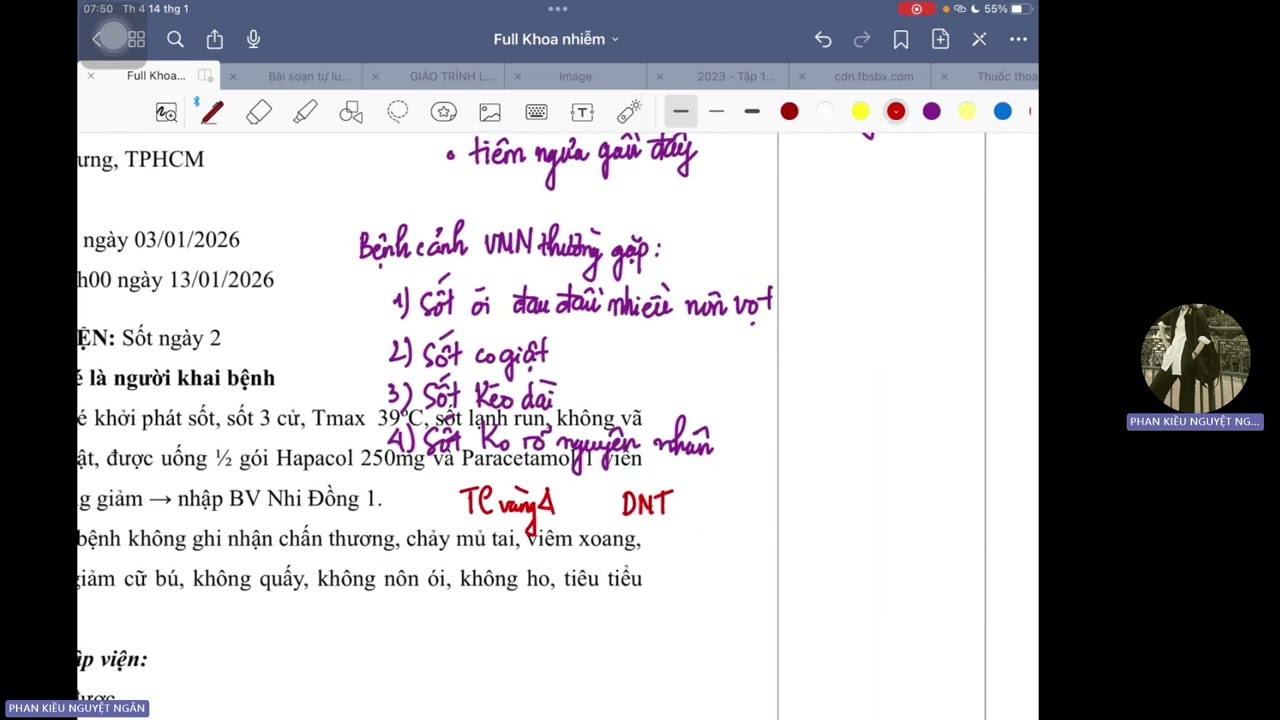 07:50 Th 4 14 thg 1
55%
Full Khoa nhiễm
Full Khoa...
Bài soạn tự lu...
GIÁO TRÌNH L...
Image
2023 - Tập 1...
cdn.fbsbx.com
Thuốc thoa
• tiêm ngừa gần đây
ưng, TPHCM
ngày 03/01/2026
Bệnh cảnh VMN thường gặp:
h00 ngày 13/01/2026
1) Sốt ói đau đầu nhiều nôn vọt
ỆN: Sốt ngày 2
2) Sốt co giật
é là người khai bệnh
3) Sốt kéo dài
é khởi phát sốt, sốt 3 cử, Tmax 39°C, sốt lạnh run, không vã
4) Sốt ko rõ nguyên nhân
ật, được uống ½ gói Hapacol 250mg và Paracetamol 1 viên
g giảm → nhập BV Nhi Đồng 1.
TC vàng Δ DNT
bệnh không ghi nhận chấn thương, chảy mủ tai, viêm xoang,
giảm cữ bú, không quấy, không nôn ói, không ho, tiêu tiểu
ập viện:
được
PHAN KIỀU NGUYỆT NG...
PHAN KIỀU NGUYỆT NGÂN